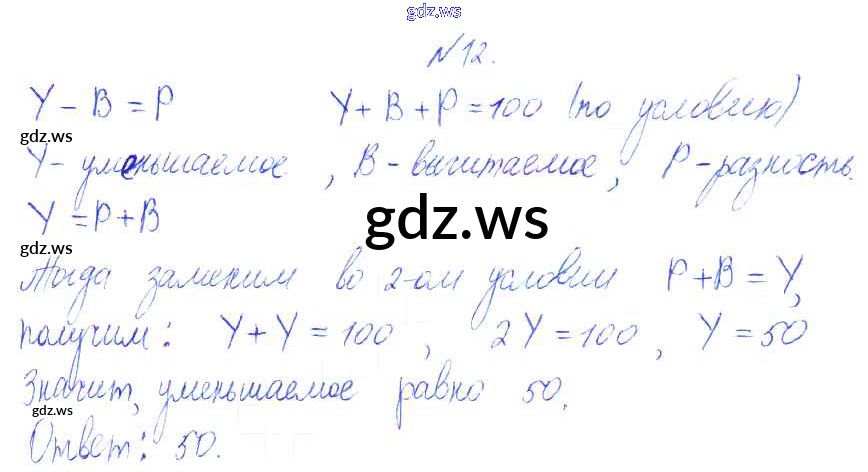 gdz.ws
№12.
У - В = Р У + В + Р = 100 (по условию)
gdz.ws
У - уменьшаемое, В - вычитаемое, Р - разность.
У = Р + В
gdz.ws
gdz.ws
Тогда заменим во 2-ом условии Р + В = У,
получим: У + У = 100, 2У = 100, У = 50
Значит, уменьшаемое равно 50.
gdz.ws
Ответ: 50.